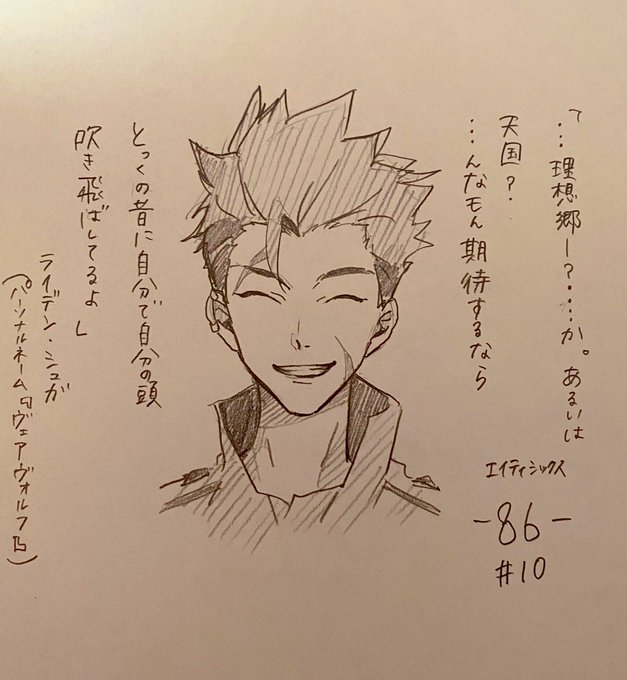 「…理想郷ー?…か。あるいは
天国?
…んなモん期待するなら
とっくの昔に自分で自分の頭
吹き飛ばしてるよ」
ライデン・シュガ
(パーソナルネーム『ヴェアヴォルフ』)
エイティシックス
-86-
#10